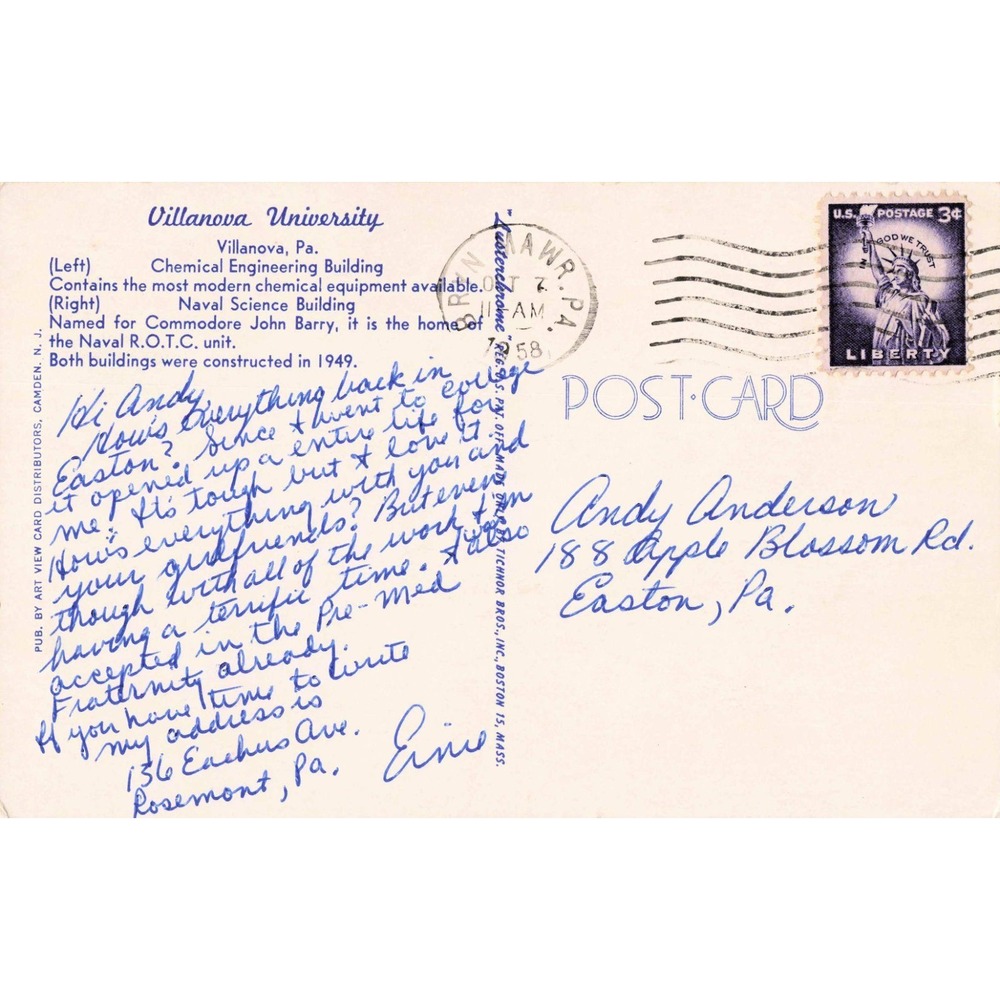 Villanova University
Villanova, Pa.
(Left) Chemical Engineering Building
Contains the most modern chemical equipment available.
(Right) Naval Science Building
Named for Commodore John Barry, it is the home of
the Naval R.O.T.C. unit.
Both buildings were constructed in 1949.
Hi Andy,
How's everything back in
Easton? Since I went to college
it opened up a entire life for
me. It's tough but I love it.
How's everything with you and
your girlfriends? But even
though with all of the work I'm
having a terrific time. I was also
accepted in the Pre-Med
Fraternity already.
If you have time to write
my address is
136 Eachus Ave.
Rosemont, Pa.
Ernie
PUB. BY ART VIEW CARD DISTRIBUTORS, CAMDEN, N. J.
"Lusterchrome" REG. U.S. PAT. OFF. MADE ONLY BY TICHNOR BROS., INC., BOSTON 15, MASS.
BRYN MAWR, PA.
OCT 7
11 AM
1958
U.S. POSTAGE 3¢
IN GOD WE TRUST
LIBERTY
POST·CARD
Andy Anderson
188 Apple Blossom Rd.
Easton, Pa.